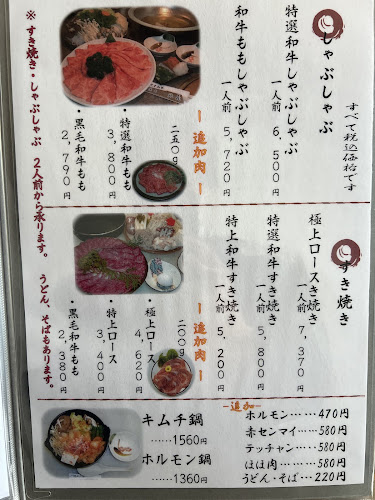 しゃぶしゃぶ
すべて税込価格です
特選和牛しゃぶしゃぶ
一人前 6,500円
和牛ももしゃぶしゃぶ
一人前 5,720円
― 追加肉 ―
二五〇g
・特選和牛もも
3,800円
・黒毛和牛もも
2,790円
※すき焼き・しゃぶしゃぶ 2人前から承ります。 うどん、そばもあります。
すき焼き
極上ロースすき焼き
一人前 7,370円
特選和牛すき焼き
一人前 5,800円
特上和牛すき焼き
一人前 5,200円
― 追加肉 ―
二〇〇g
・極上ロース
4,620円
・特上ロース
3,400円
・黒毛和牛もも
2,380円
キムチ鍋
……1560円
ホルモン鍋
……1360円
―追加―
ホルモン……470円
赤センマイ……580円
テッチャン……580円
ほほ肉………580円
うどん・そば…220円